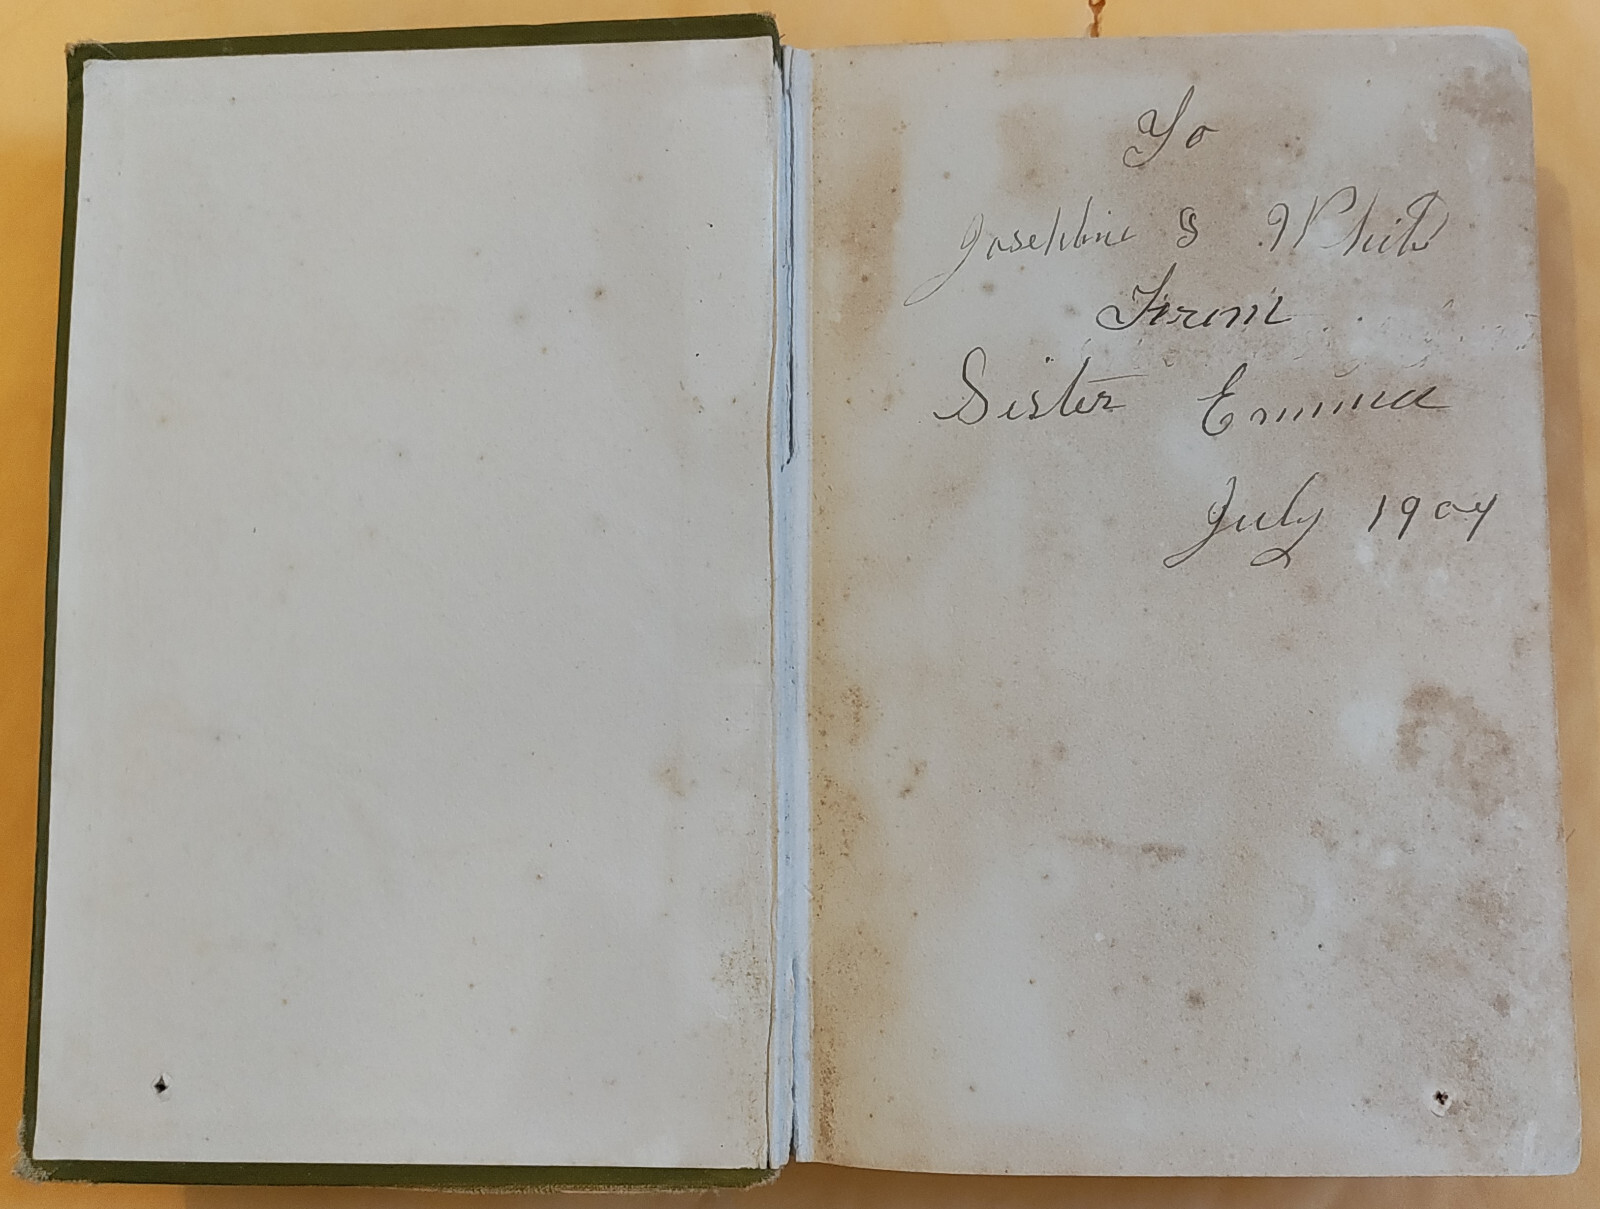 To
Josephine S White
From
Sister Emma
July 1904